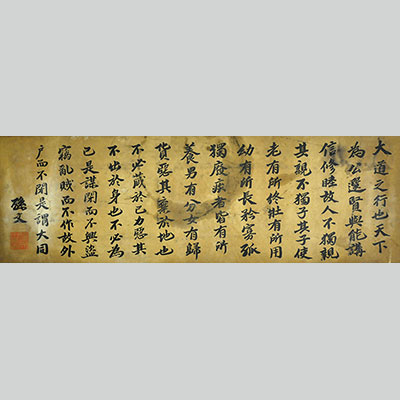 大道之行也天下
為公選賢與能講
信修睦故人不獨親
其親不獨子其子使
老有所終壯有所用
幼有所長矜寡孤
獨廢疾者皆有所
養男有分女有歸
貨惡其棄於地也
不必藏於己力惡其
不出於身也不必為
己是謀閉而不興盜
竊亂賊而不作故外
户而不閉是謂大同
孫文